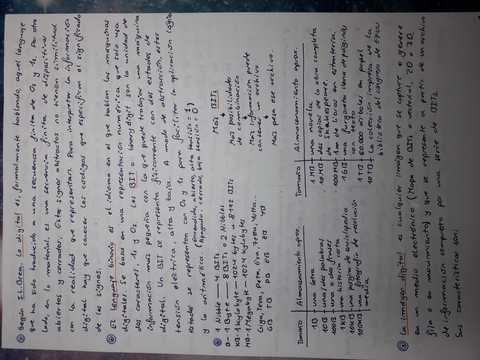 ① Según I.L. Brea, lo digital es, formalmente hablando, aquel lenguaje
que ha sido traducido a una secuencia finita de 0s y 1s. Por otro
lado, en lo material, es una secuencia finita de dispositivos
abiertos y cerrados. Estos signos abstractos no tienen similitud
con la realidad que representan. Para interpretar la información
digital hay que conocer los códigos que especifican el significado
de los signos.
② El lenguaje binario es el idioma en el que hablan las máquinas
digitales. Se basa en una representación numérica que solo usa
dos caracteres: 1s y 0s. Los BITS o binary digit son la unidad de
información más pequeña con la que puede trabajar un aparato
digital. Un BIT se representa físicamente con dos estados de
tensión eléctrica, alta y baja. A modo de abstracción, estos
estados se representan con 0s y 1s para facilitar la aplicación lógica
y la aritmética (Apagado, cerrado, baja tensión = 0)
③ - 1 Nibble — 4 BITS
- 1 Byte — 8 BITS o 2 Nibbles
KB - 1 Kylobyte — 1024 bytes — 8192 BITs
MB - 1 Megabyte — 1024 kylobytes
Giga, Tera, Peta, Exa, Zetta, Yotta
GB TB PB EB ZB YB
Más BITS
Más posibilidades
de combinación
Más información puede
contener un archivo
Más pesa ese archivo.
Tamaño Almacenamiento aprox.
1B → una letra
10B → unas dos palabras
100B → unas dos frases
1KB → una historia muy corta
10KB → página de enciclopedia
100KB → una fotografía de resolución
media
Tamaño Almacenamiento aprox.
1 MB → una novela
10MB → dos copias de la obra completa
de Shakespeare
100MB → 1 m de libros en estantería
1GB → una furgoneta llena de páginas
con texto
1TB → 50.000 árboles en papel
10TB → La colección impresa de la
biblioteca del congreso de EEUU
④ La imagen digital es cualquier imagen que se capture o genere
en un medio electrónico (Mapa de BITs o vectorial, 2D o 3D,
fija o en movimiento) y que se represente a partir de un archivo
de información compuesto por una serie de BITS.
Sus características son: